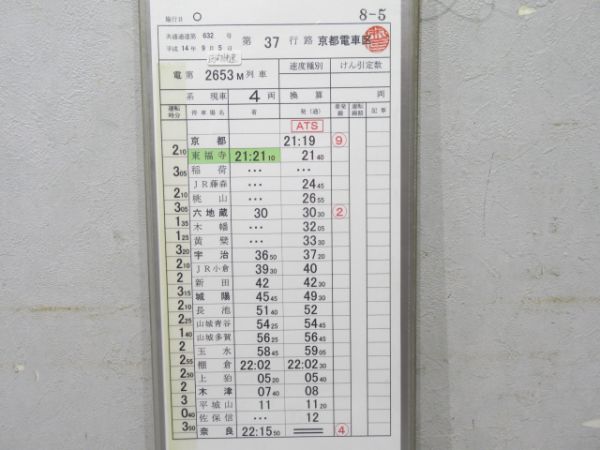 施行日 ○ 8-5
共通過達第 632 号
平成 14年 9月 5日 第 37 行路 京都電車区
区間快速
電 第 2653M 列車 速度種別 けん引定数
系 現車 4 両 換算 両
運転時分 停車場名 着 発(通) 着発線 運転時刻 記事
ATS
京都 21:19 ⑨
2 10 東福寺 21:21 10 21 40
3 05 稲荷 ... ...
JR藤森 ... 24 45
2 10 桃山 ... 26 55
3 05 六地蔵 30 30 30 ②
1 35 木幡 ... 32 05
1 25 黄檗 ... 33 30
3 20 宇治 36 50 37 20
2 10 JR小倉 39 30 40
2 新田 42 42 30
3 15 城陽 45 45 49 30
2 10 長池 51 40 52
2 25 山城青谷 54 25 54 45
1 40 山城多賀 56 25 56 45
2 玉水 58 45 59 05
2 55 棚倉 22:02 22:02 30
2 50 上狛 05 20 05 40
2 木津 07 40 08
3 平城山 11 11 20
0 40 佐保信 ... 12
3 50 奈良 22:15 50 ④